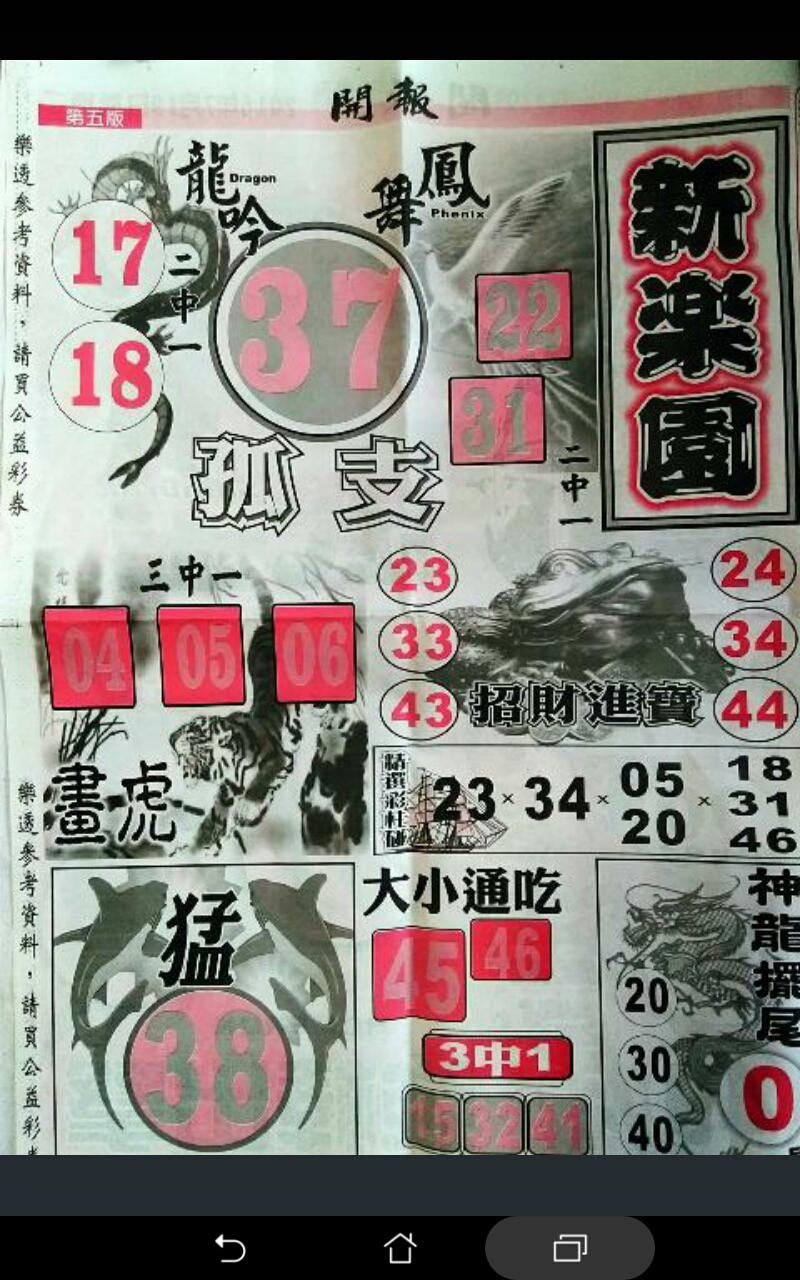 開報
第五版
樂透參考資料，請買公益彩券
龍吟
Dragon
鳳舞
Phenix
新楽園
17
18
二中一
37
孤支
22
31
二中一
三中一
04 05 06
畫虎
23
33
43
24
34
44
招財進寶
精選彩柱碰
23 × 34 × 05 20 × 18 31 46
樂透參考資料，請買公益彩
猛
38
大小通吃
45 46
3中1
15 32 41
神龍擺尾
20
30
40
0